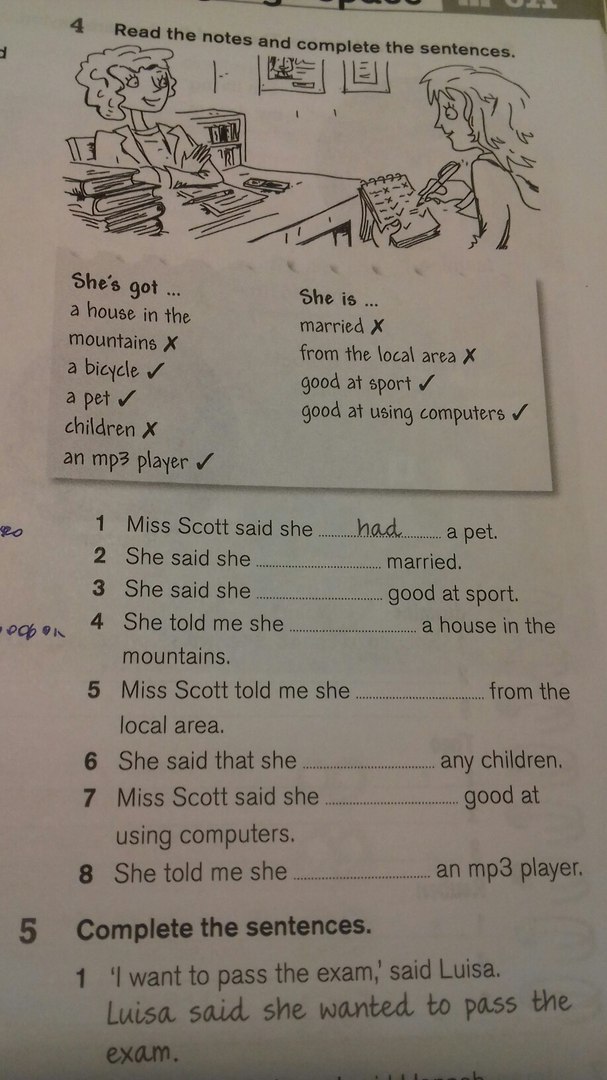 4 Read the notes and complete the sentences.
She's got ...
a house in the
mountains ✗
a bicycle ✓
a pet ✓
children ✗
an mp3 player ✓
She is ...
married ✗
from the local area ✗
good at sport ✓
good at using computers ✓
1 Miss Scott said she ....had.... a pet.
2 She said she .................... married.
3 She said she .................... good at sport.
4 She told me she .................... a house in the
mountains.
5 Miss Scott told me she .................... from the
local area.
6 She said that she .................... any children.
7 Miss Scott said she .................... good at
using computers.
8 She told me she .................... an mp3 player.
5 Complete the sentences.
1 'I want to pass the exam,' said Luisa.
Luisa said she wanted to pass the
exam.